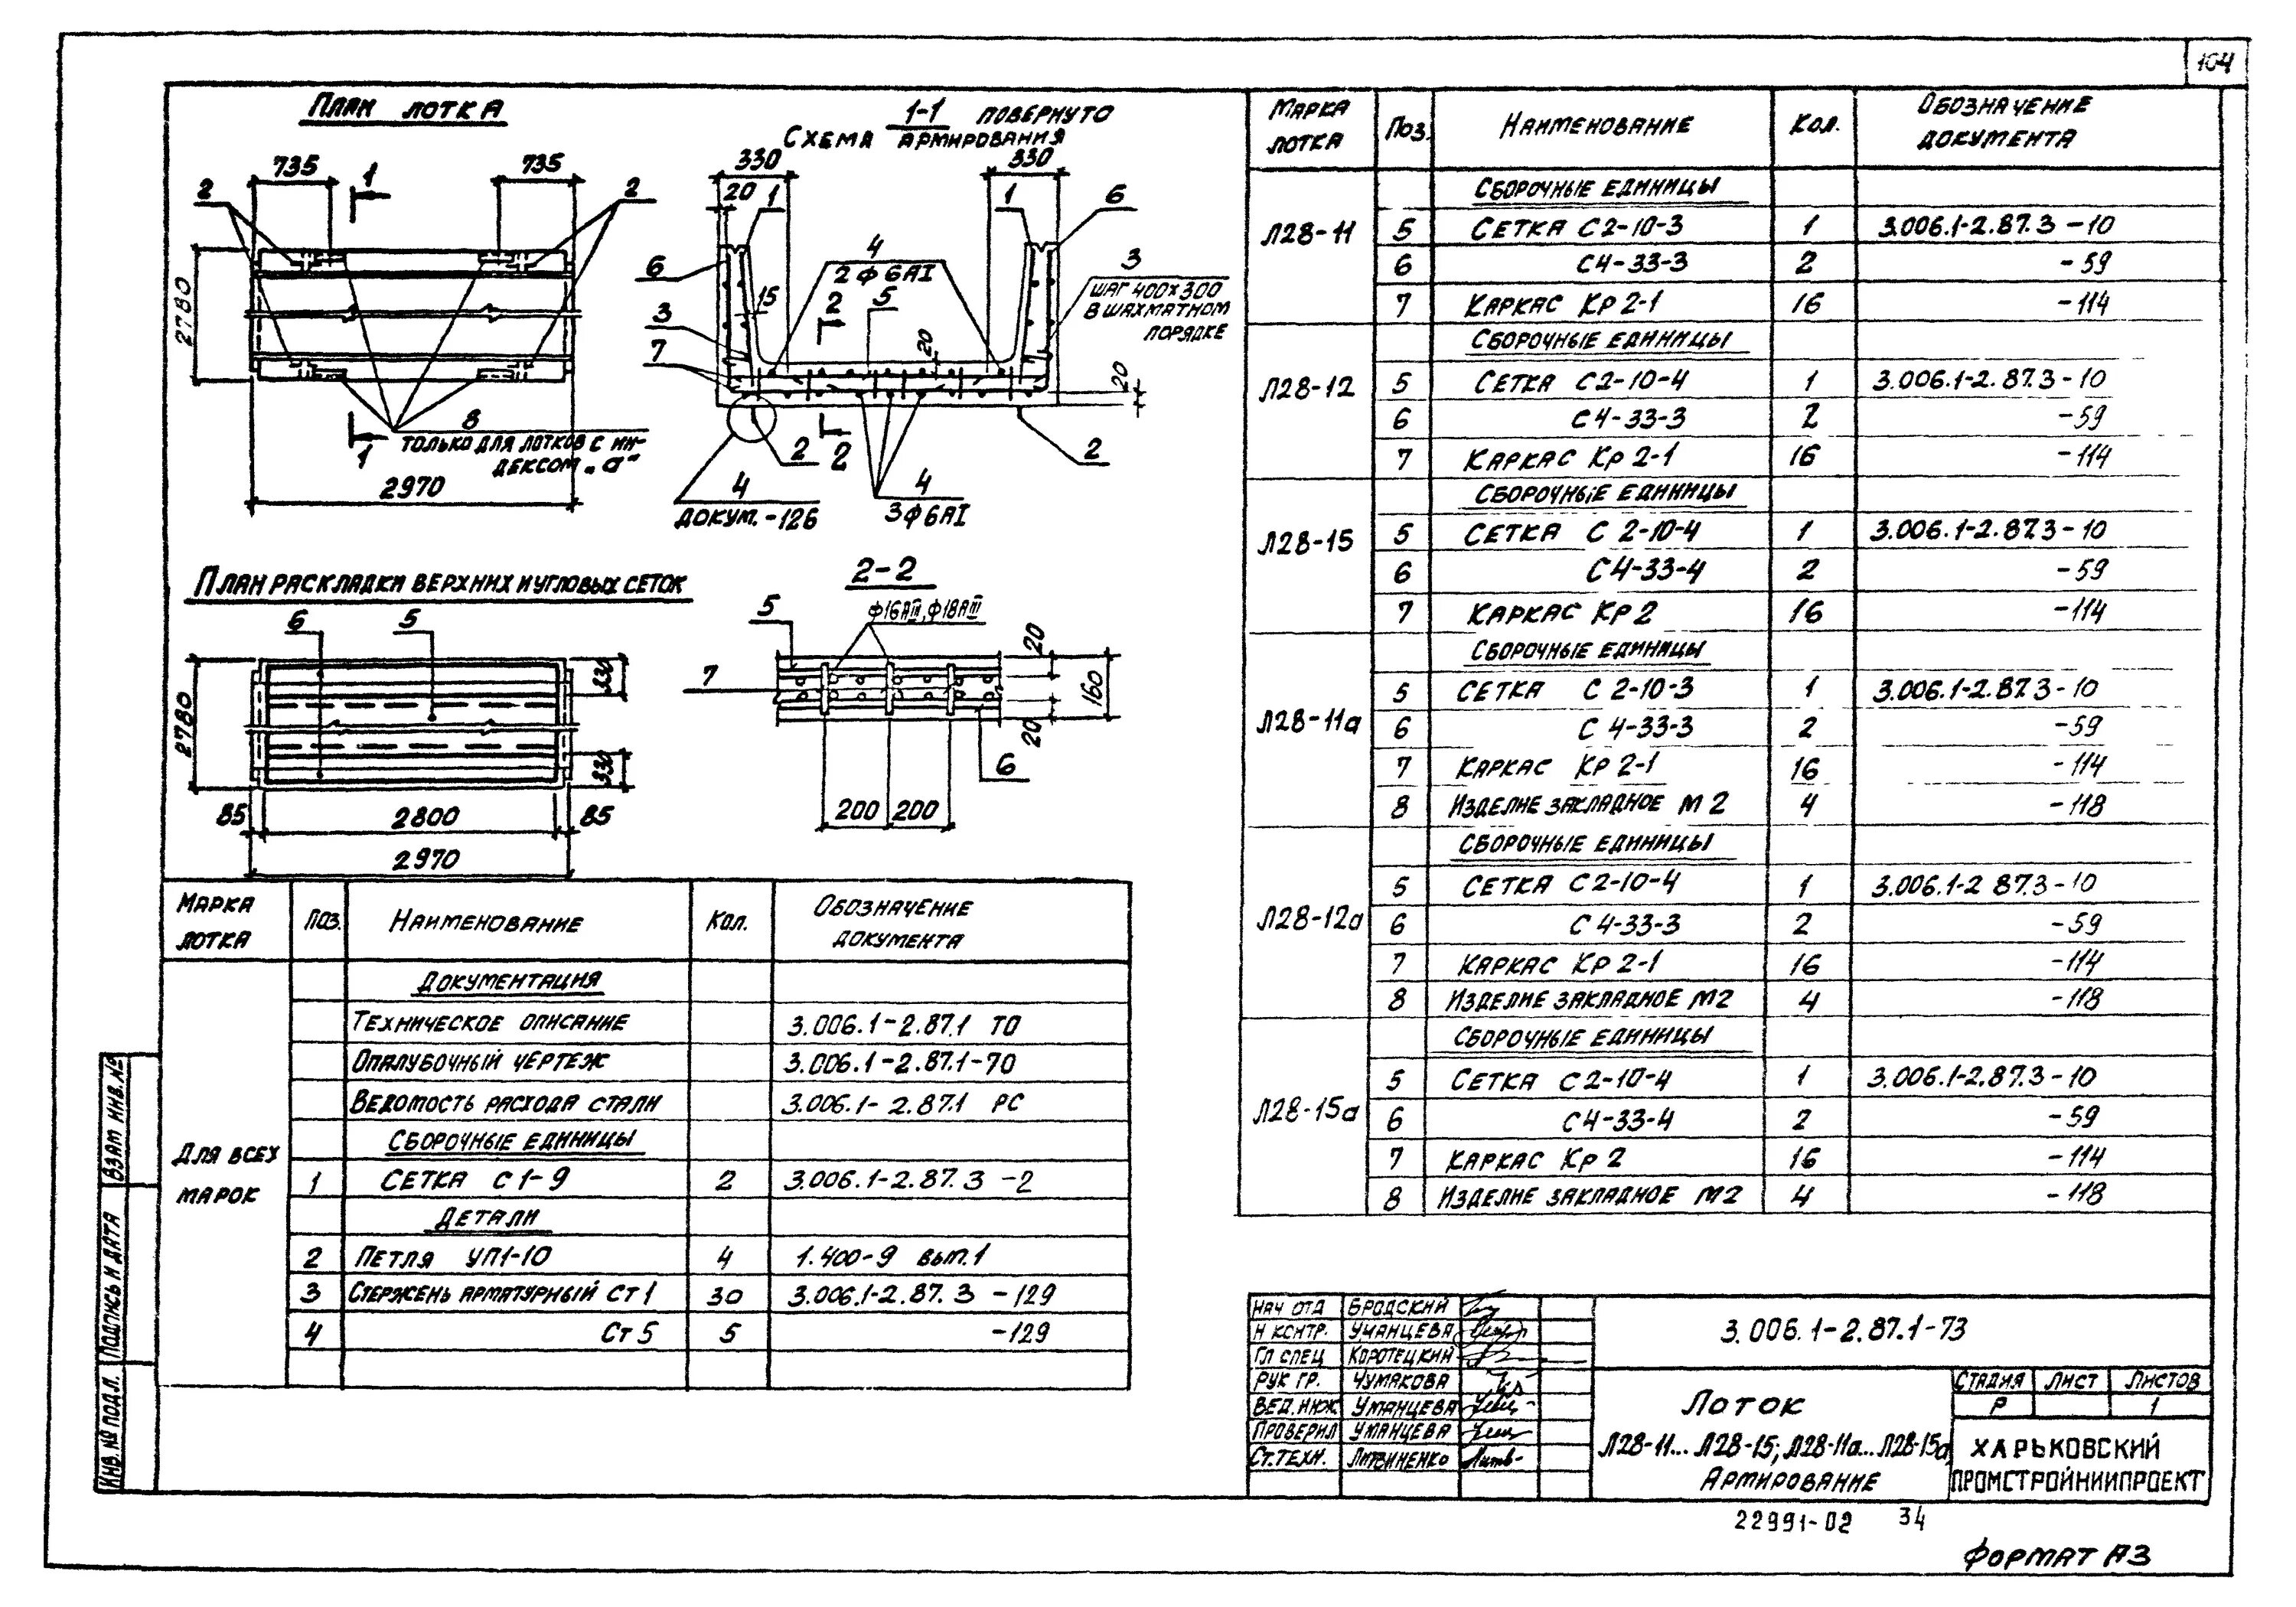 104
План лотка
735
735
1
2
2
2780
8
только для лотков с ин-
дексом „а“
1
2970
1-1 повернуто
Схема армирования
330
330
20
1
1
6
4
2ф6АI
6
3
шаг 400×300
в шахматном
порядке
15
2
5
3
7
20
20
2
2
2
4
докум.-126
4
3ф6АI
План раскладки верхних и угловых сеток
6
5
330
2780
330
85
2800
85
2970
2-2
ф16АIII, ф18АIII
5
20
7
160
20
6
200 200
Марка лотка Поз. Наименование Кол. Обозначение документа
Для всех марок
Документация
Техническое описание 3.006.1-2.87.1 ТО
Опалубочный чертеж 3.006.1-2.87.1-70
Ведомость расхода стали 3.006.1-2.87.1 РС
Сборочные единицы
1 Сетка С1-9 2 3.006.1-2.87.3 -2
Детали
2 Петля УП1-10 4 1.400-9 вып.1
3 Стержень арматурный Ст 1 30 3.006.1-2.87.3 -129
4 Ст 5 5 -129
Марка лотка Поз. Наименование Кол. Обозначение документа
Л28-11
Сборочные единицы
5 Сетка С2-10-3 1 3.006.1-2.87.3 -10
6 С4-33-3 2 -59
7 Каркас Кр 2-1 16 -114
Л28-12
Сборочные единицы
5 Сетка С2-10-4 1 3.006.1-2.87.3-10
6 С4-33-3 2 -59
7 Каркас Кр 2-1 16 -114
Л28-15
Сборочные единицы
5 Сетка С 2-10-4 1 3.006.1-2.87.3-10
6 С4-33-4 2 -59
7 Каркас Кр 2 16 -114
Л28-11а
Сборочные единицы
5 Сетка С 2-10-3 1 3.006.1-2.87.3-10
6 С 4-33-3 2 -59
7 Каркас Кр 2-1 16 -114
8 Изделие закладное М2 4 -118
Л28-12а
Сборочные единицы
5 Сетка С2-10-4 1 3.006.1-2 87.3-10
6 С 4-33-3 2 -59
7 Каркас Кр 2-1 16 -114
8 Изделие закладное М2 4 -118
Л28-15а
Сборочные единицы
5 Сетка С2-10-4 1 3.006.1-2.87.3-10
6 С4-33-4 2 -59
7 Каркас Кр 2 16 -114
8 Изделие закладное М2 4 -118
Взам инв. №
Подпись и дата
Инв. № подл.
Нач отд Бродский
Н контр. Уманцева
Гл спец Коротецкий
Рук гр. Чумакова
Вед. инж Уманцева
Проверил Уманцева
Ст. техн. Литвиненко
3.006.1-2.87.1-73
Лоток
Л28-11... Л28-15; Л28-11а... Л28-15а
Армирование
Стадия Лист Листов
Р 1
Харьковский
Промстройниипроект
22991-02 34
Формат А3